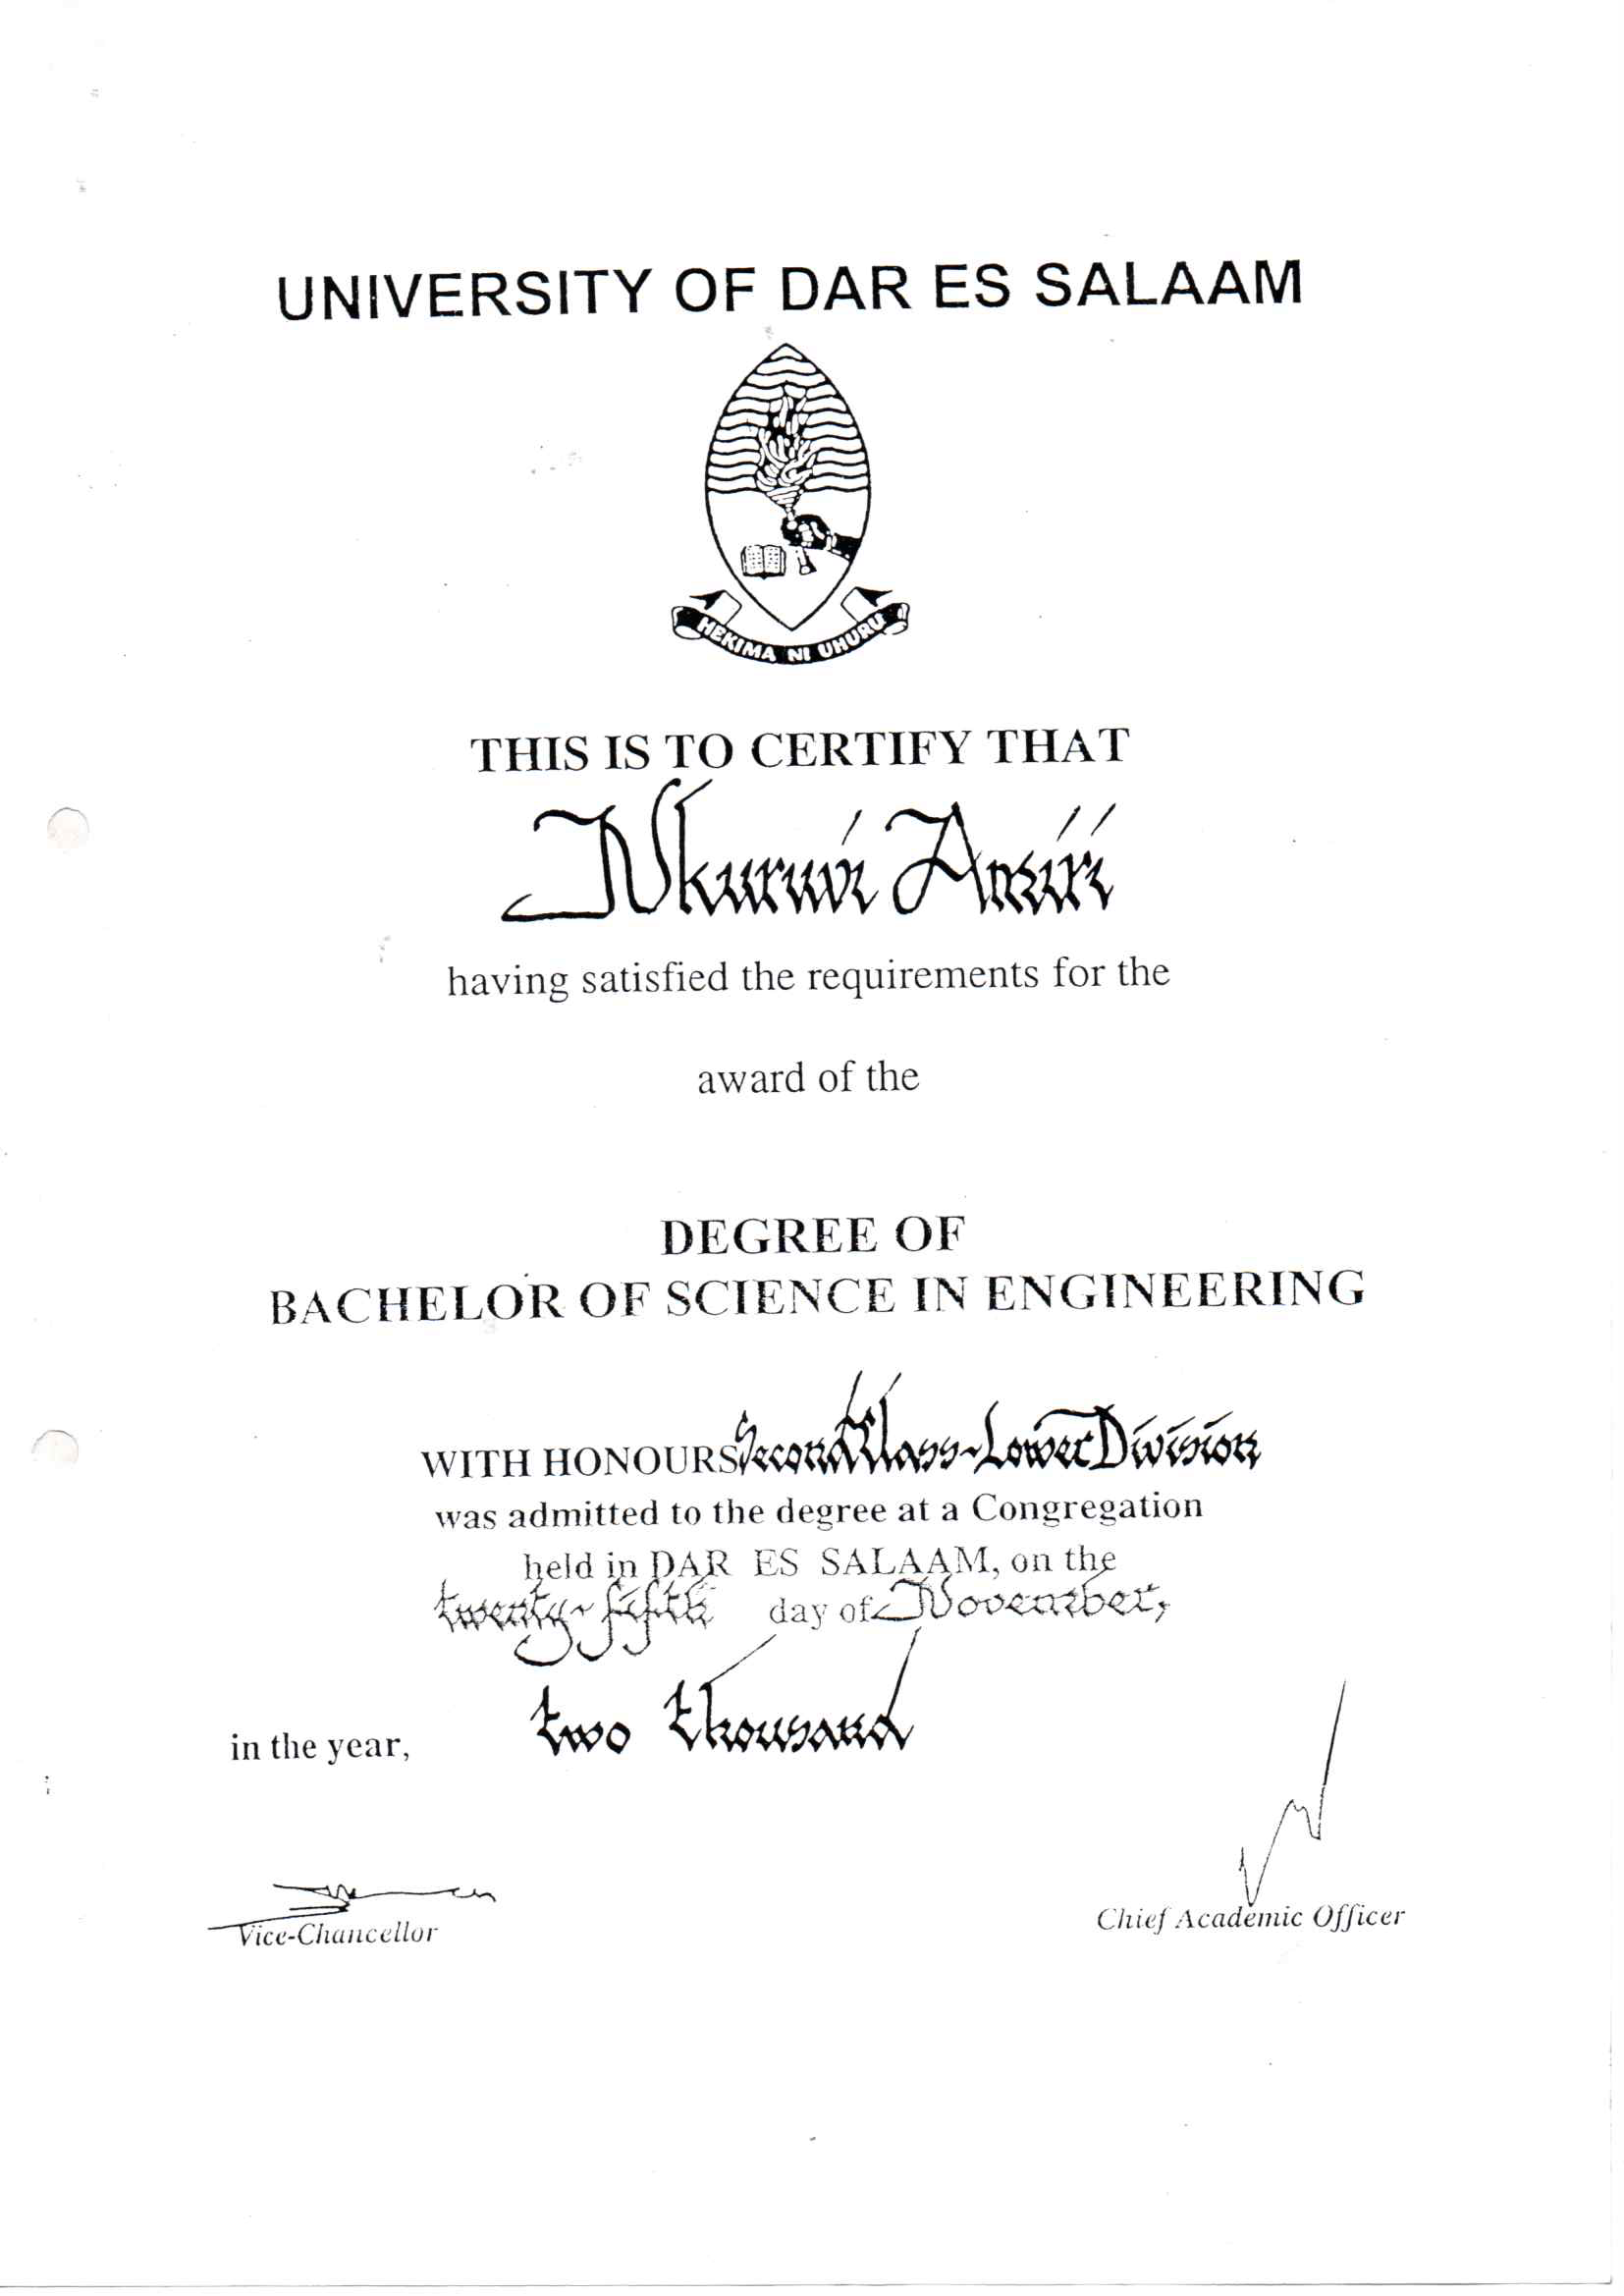 UNIVERSITY OF DAR ES SALAAM
HEKIMA NI UHURU
THIS IS TO CERTIFY THAT
Nkuruvi Amiri
having satisfied the requirements for the
award of the
DEGREE OF
BACHELOR OF SCIENCE IN ENGINEERING
WITH HONOURS Second Class-Lower Division
was admitted to the degree at a Congregation
held in DAR ES SALAAM, on the
twenty-fifth day of November,
in the year, two thousand
Vice-Chancellor
Chief Academic Officer